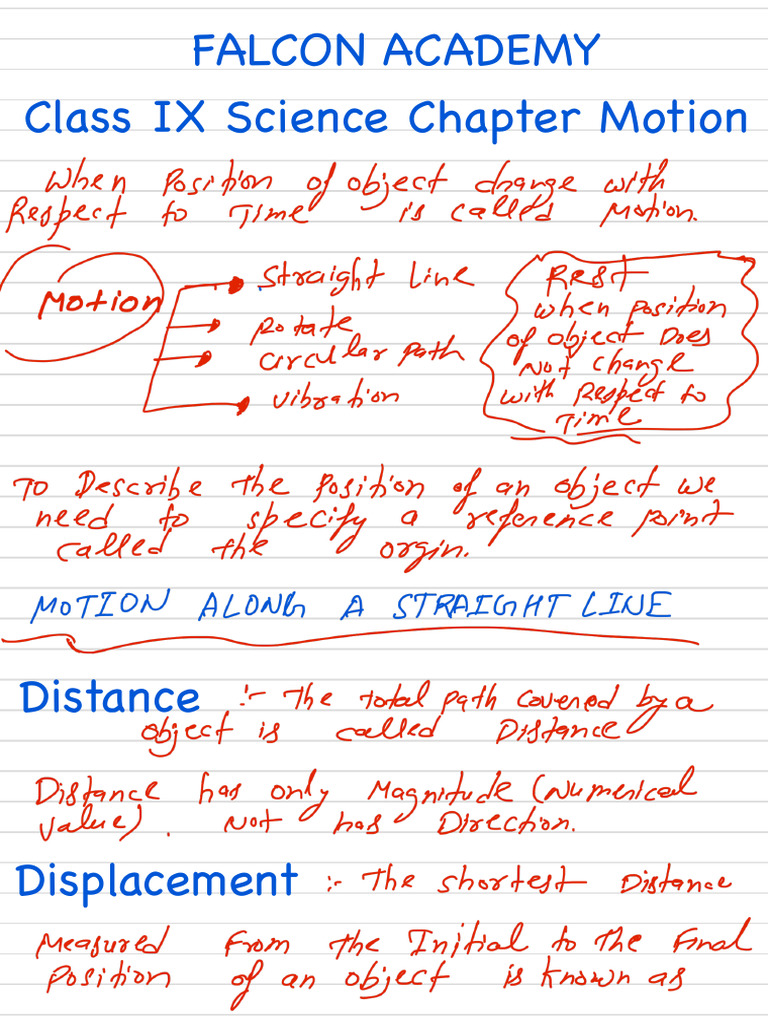 FALCON ACADEMY
Class IX Science Chapter Motion
When Position of object change with
Respect to Time is called Motion.
Motion
Straight Line
Rotate
Circular path
Vibration
Rest
When position
of object Does
Not Change
with Respect to
Time
To Describe the Position of an object we
need to specify a reference point
called the orgin.
MOTION ALONG A STRAIGHT LINE
Distance :- The total path covered by a
object is called Distance
Distance has only Magnitude (Numerical
value). Not has Direction.
Displacement :- The shortest Distance
Measured from the Initial to The Final
position of an object is known as